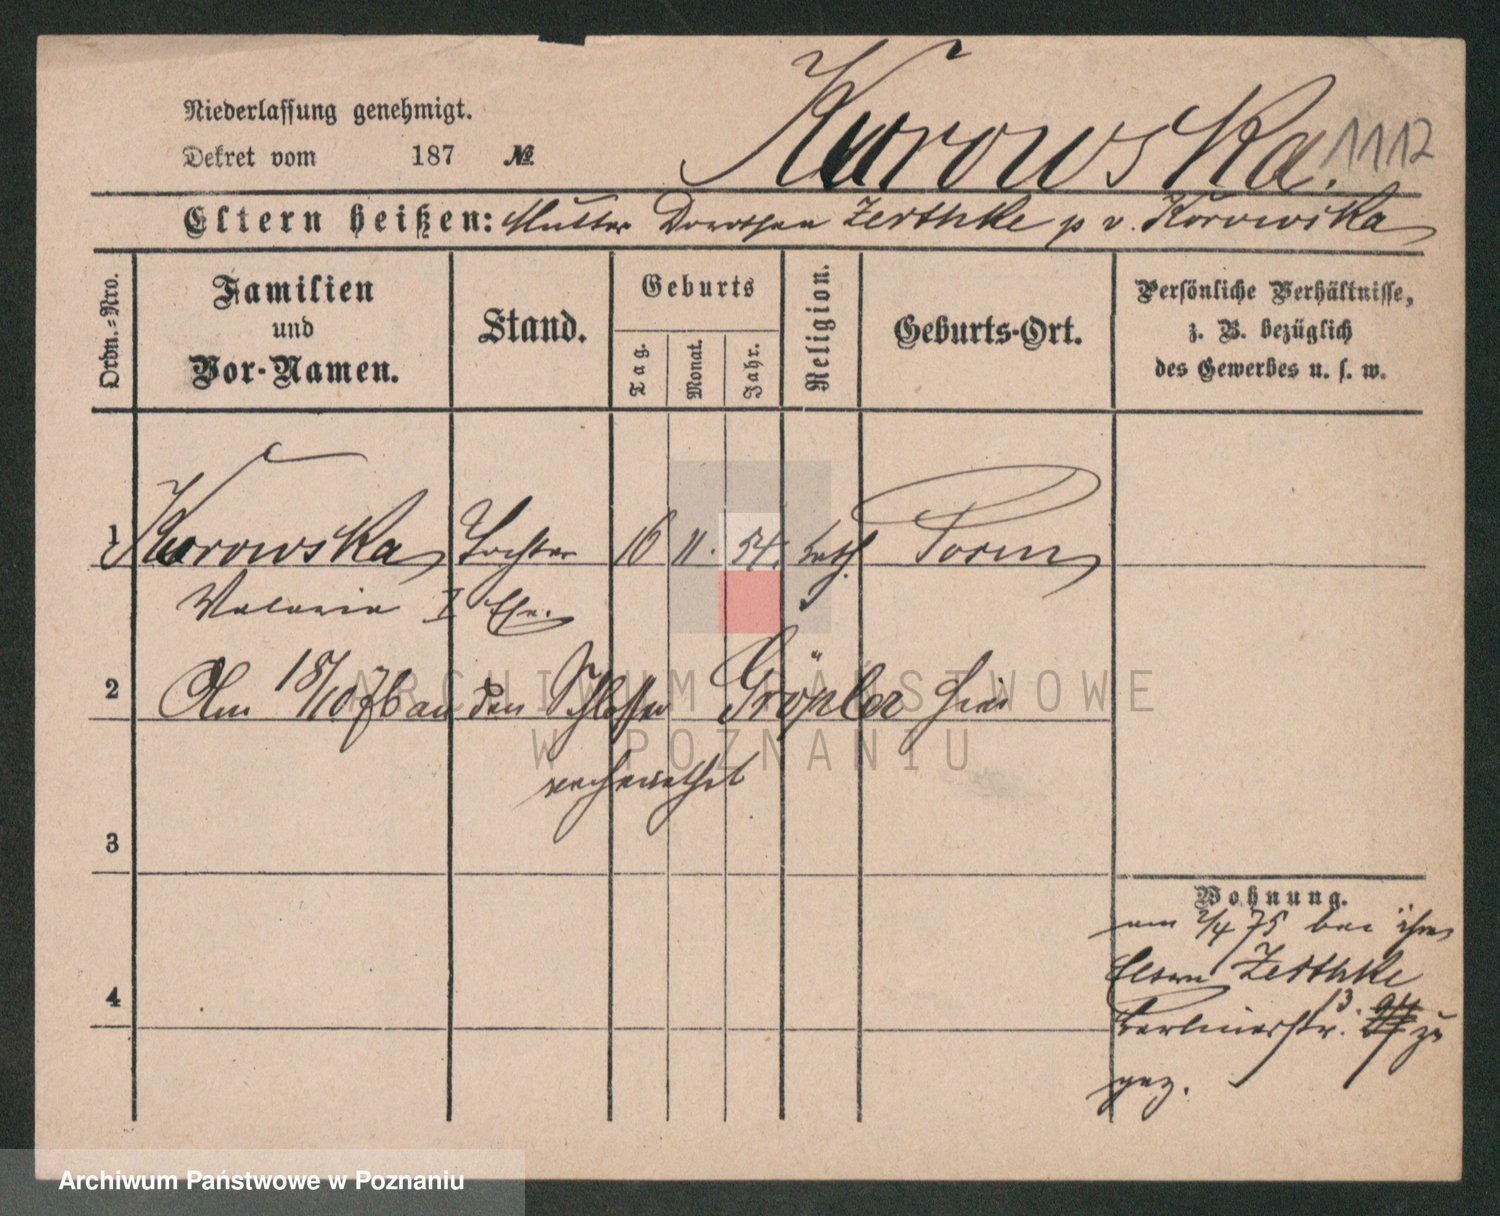 Niederlassung genehmigt.
Dekret vom 187 №
Kurowska. 1112
Eltern heißen: Mutter Dorothea Zerthke p v. Korowska
Ordn.=Nro.
Familien
und
Vor-Namen.
Stand.
Geburts
Tag.
Monat.
Jahr.
Religion.
Geburts-Ort.
Persönliche Verhältnisse,
z. B. bezüglich
des Gewerbes u. s. w.
1 Korowska Tochter 16 11. 54. kath.
Valeria I Ehe.
2 Am 18/10 76 an den Schlosser Gröpler hier
verheirathet
3
Wohnung.
am 2/4 75 bei ihren
Eltern Zerthke
4
Berlinerstr. 13. zu
gez.
ARCHIWUM PAŃSTWOWE
W POZNANIU
Archiwum Państwowe w Poznaniu